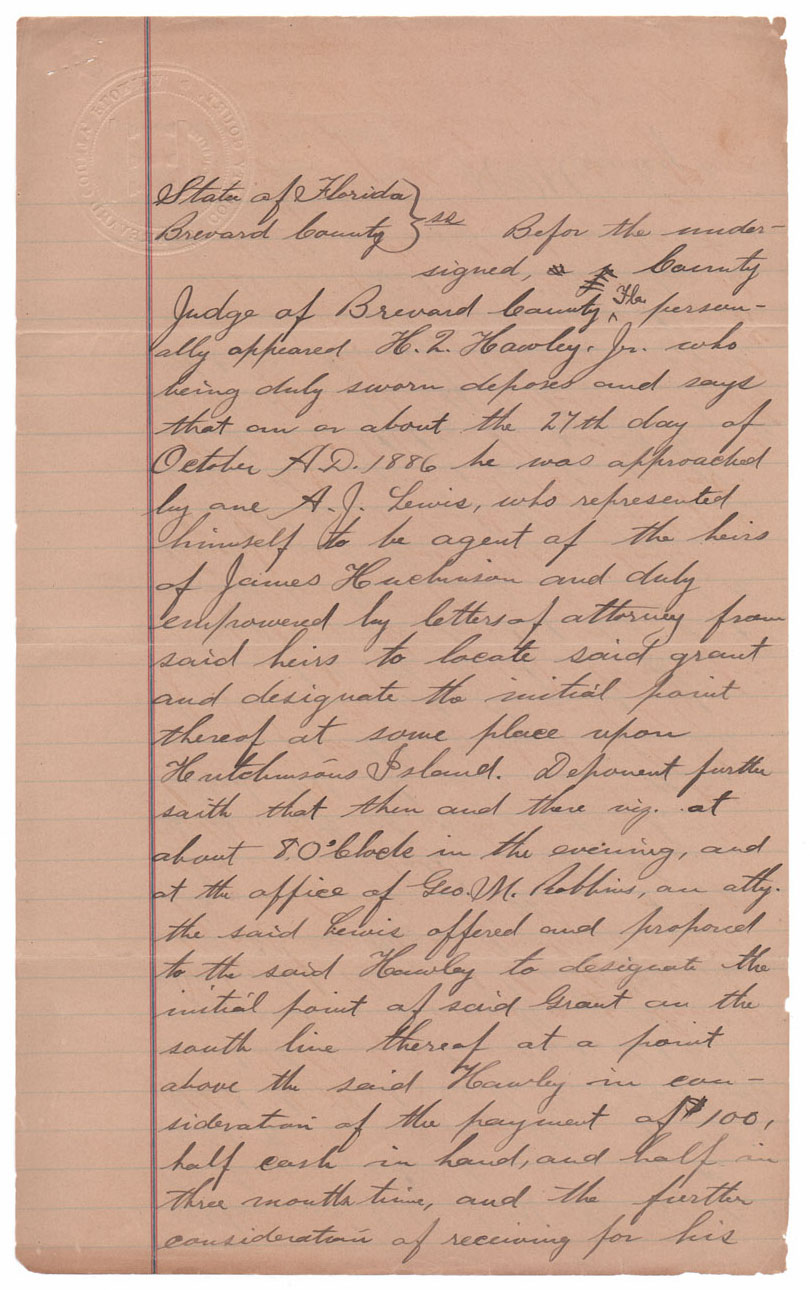 State of Florida
Brevard County } ss Befor the under-
signed, County
Judge of Brevard County Fla person-
ally appeared H. L. Hawley, Jr. who
being duly sworn deposes and says
that on or about the 27th day of
October A.D. 1886 he was approached
by one A. J. Lewis, who represented
himself to be agent of the heirs
of James Huchinson and duly
empowered by letters of attorney from
said heirs to locate said grant
and designate the initial point
thereof at some place upon
Hutchinsons Island. Deponent further
saith that then and there viz. at
about 8. O'Clock in the evening, and
at the office of Geo. M. Robbins, an atty.
the said Lewis offered and proposed
to the said Hawley to designate the
initial point of said Grant on the
south line thereof at a point
above the said Hawley in con-
sideration of the payment of $100,
half cash in hand, and half in
three months time, and the further
consideration of receiving for his